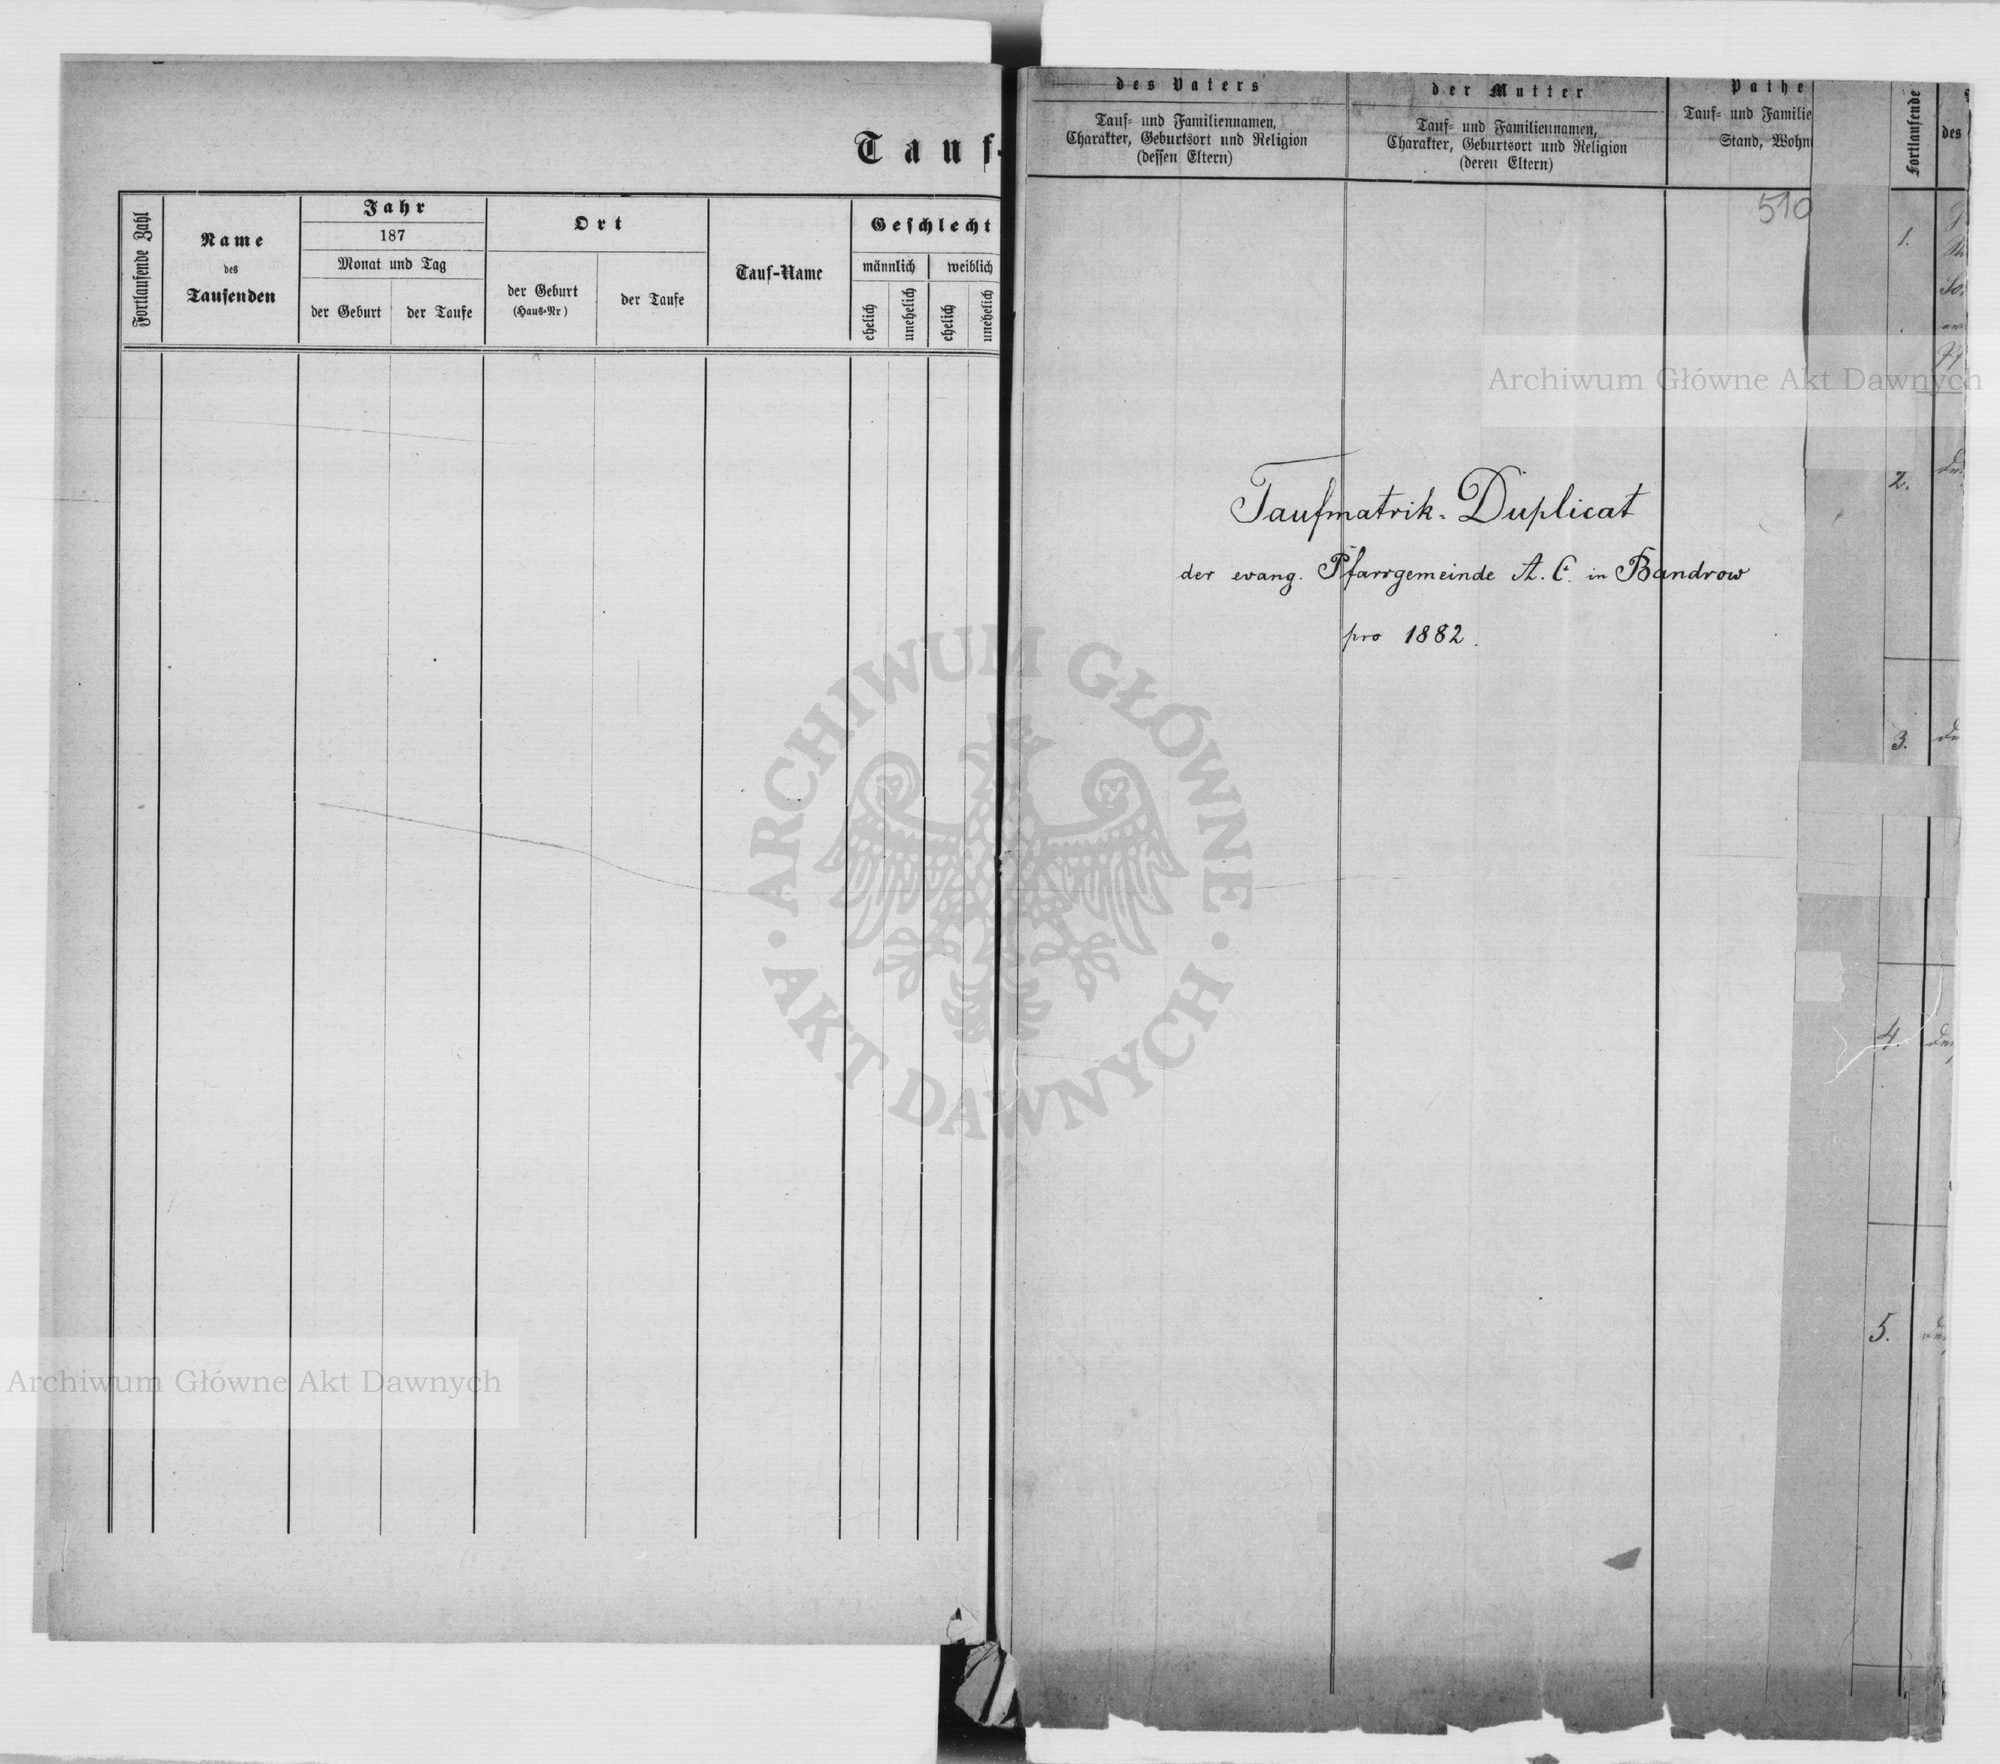 Tauf-
Fortlaufende Zahl
Name
des
Taufenden
Jahr
187
Monat und Tag
der Geburt
der Taufe
Ort
der Geburt
(Haus-Nr)
der Taufe
Tauf-Name
Geschlecht
männlich
weiblich
ehelich
unehelich
ehelich
unehelich
des Vaters
Tauf- und Familiennamen,
Charakter, Geburtsort und Religion
(dessen Eltern)
der Mutter
Tauf- und Familiennamen,
Charakter, Geburtsort und Religion
(deren Eltern)
Pathe
Tauf- und Familie
Stand, Wohn
510
Taufmatrik-Duplicat
der evang. Pfarrgemeinde A. C. in Bandrow
pro 1882.
Fortlaufende
des
1.
2.
3.
4.
5.
Archiwum Główne Akt Dawnych
ARCHIWUM GŁÓWNE
AKT DAWNYCH
Archiwum Główne Akt Dawnych